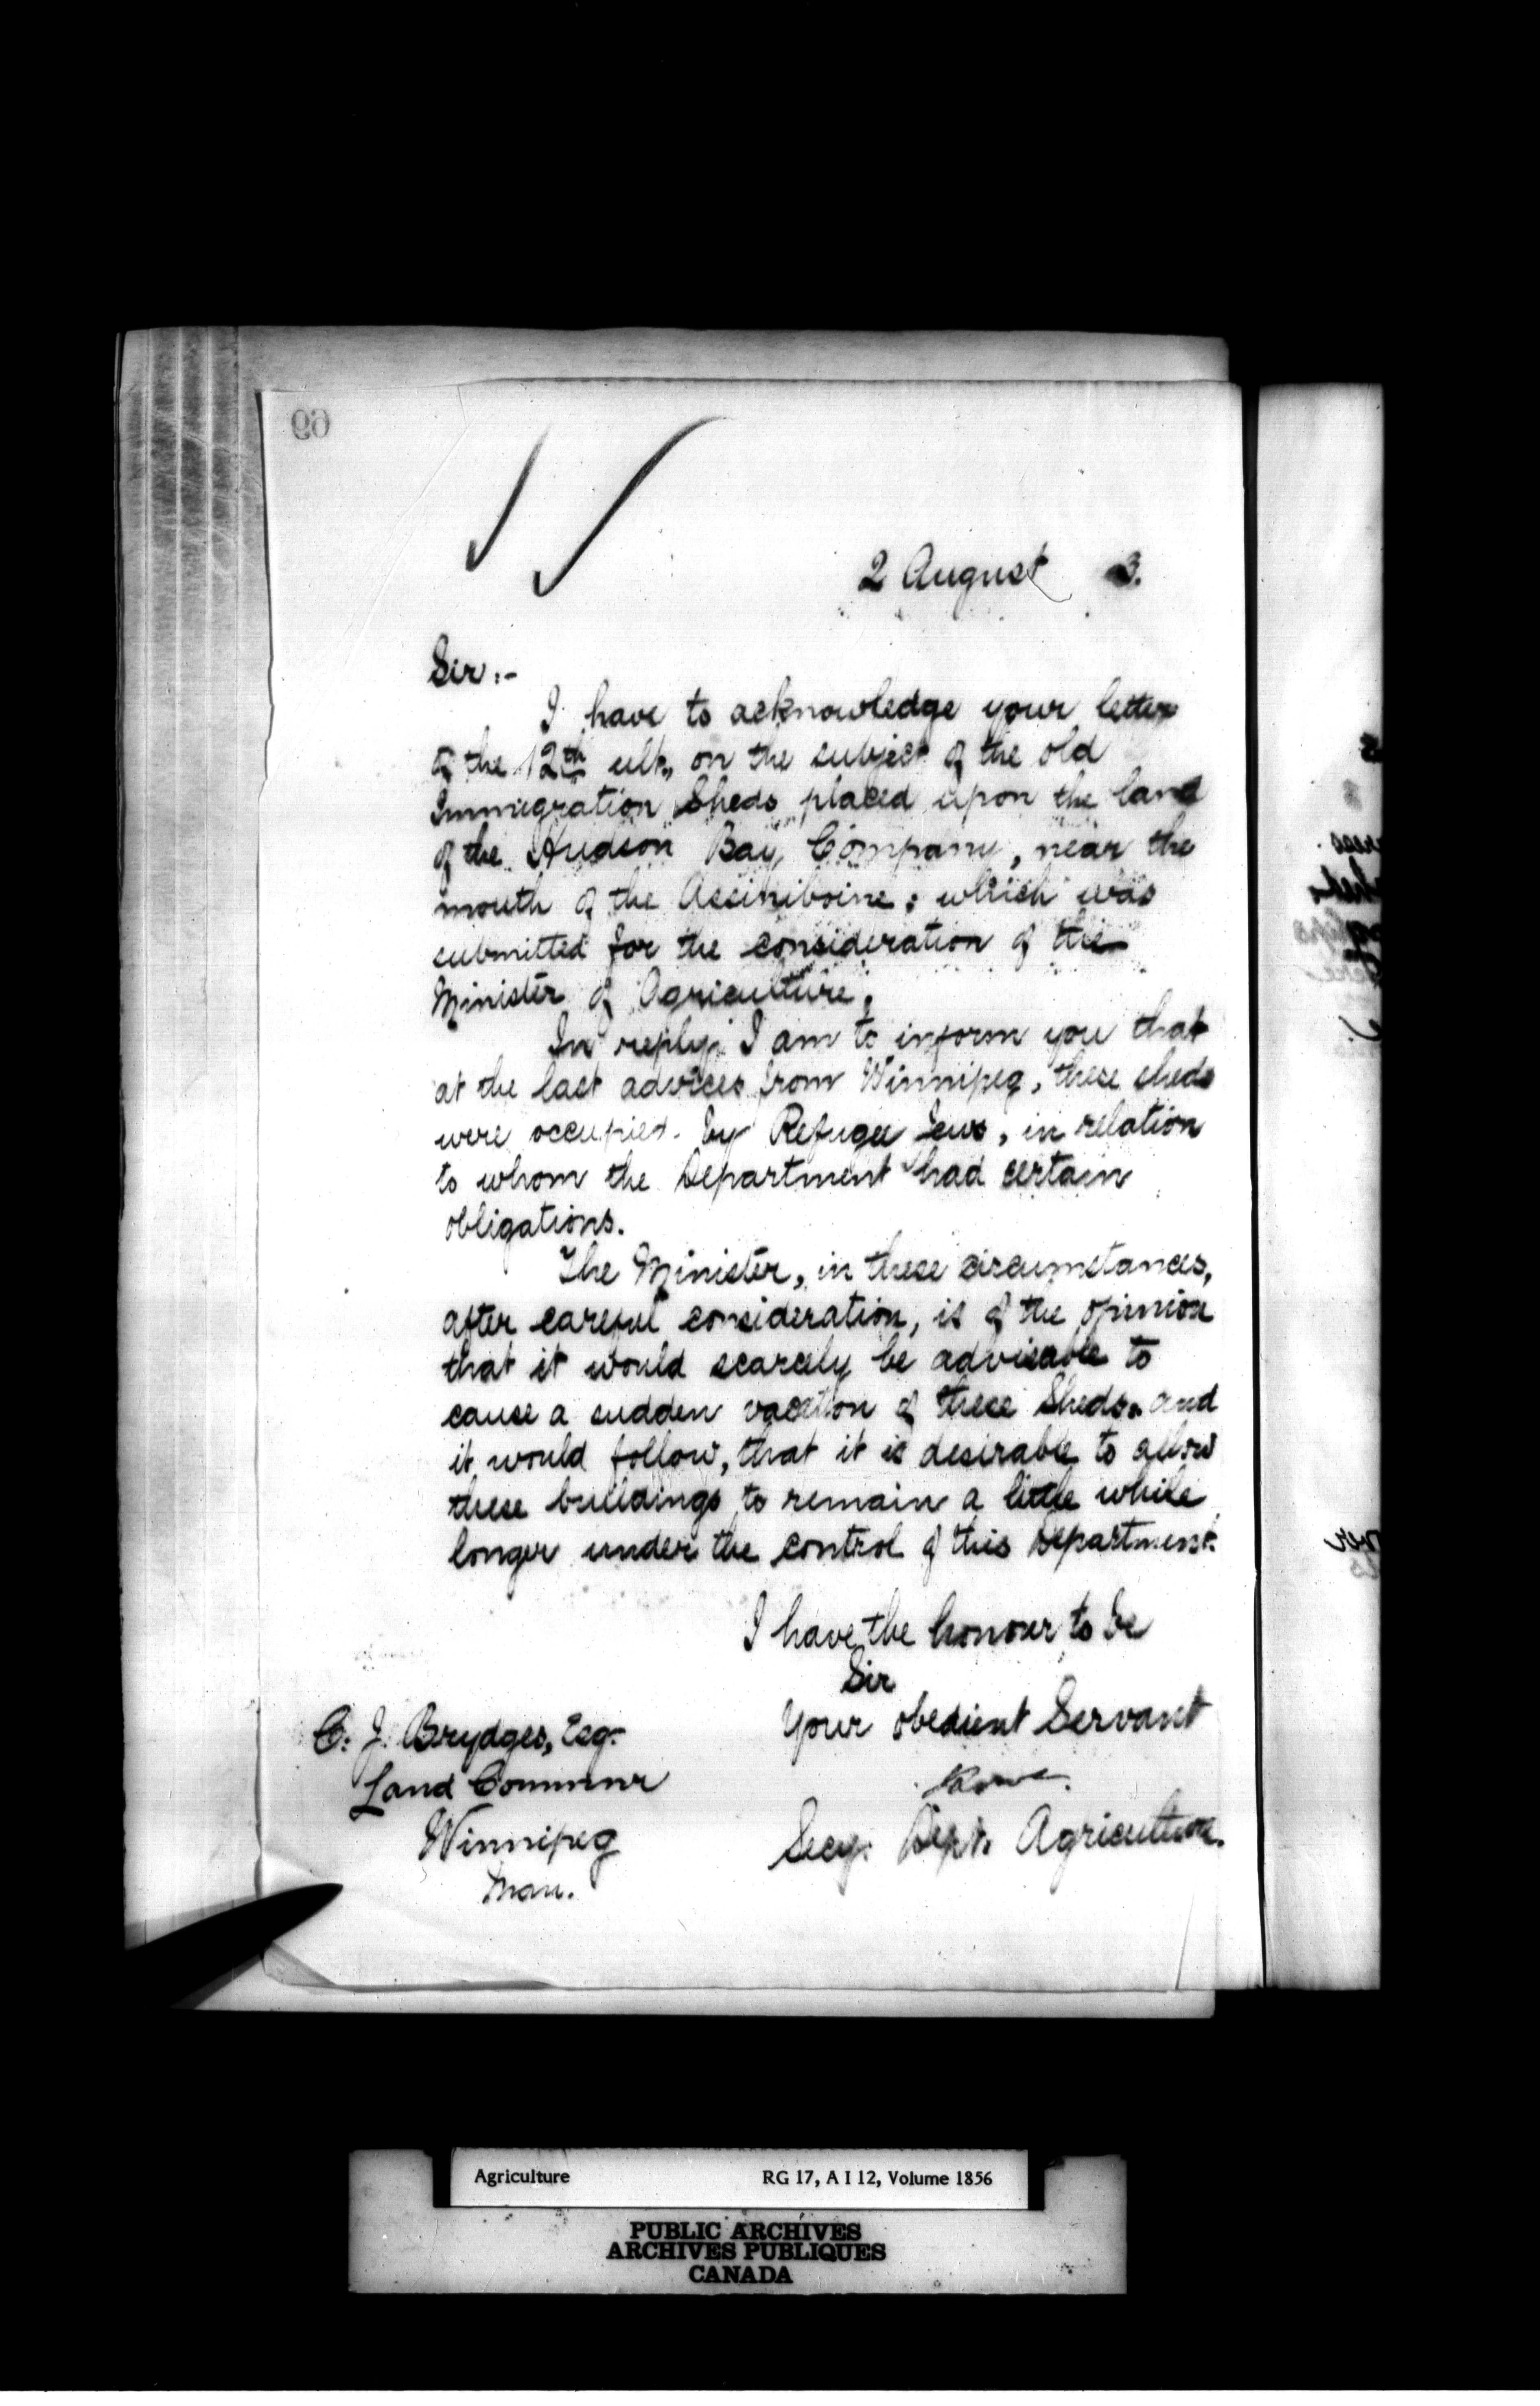 69
2 August 3.
Sir:-
I have to acknowledge your letter
of the 12th ult., on the subject of the old
Immigration Sheds placed upon the land
of the Hudson Bay Company, near the
mouth of the Assiniboine; which was
submitted for the consideration of the
Minister of Agriculture.
In reply, I am to inform you that
at the last advices from Winnipeg, these sheds
were occupied by Refugee Jews, in relation
to whom the Department had certain
obligations.
The Minister, in these circumstances,
after careful consideration, is of the opinion
that it would scarcely be advisable to
cause a sudden vacation of these Sheds, and
it would follow, that it is desirable to allow
these buildings to remain a little while
longer under the control of this Department.
I have the honour to be
Sir
Your obedient Servant
Secy. Dept. Agriculture.
C. J. Brydges, Esq.
Land Commnr
Winnipeg
Man.
Agriculture RG 17, A I 12, Volume 1856
PUBLIC ARCHIVES
ARCHIVES PUBLIQUES
CANADA